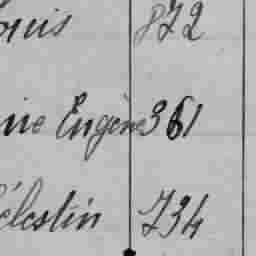 ouis 872
ine Eugène 361
élestin 734